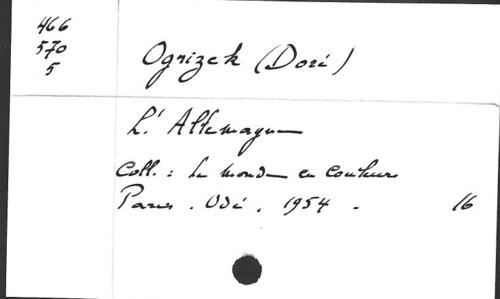 466
570
5
Ogrizek (Doré)
L'Allemagne
Coll. : Le monde en couleurs
Paris. Odé, 1954 - 16